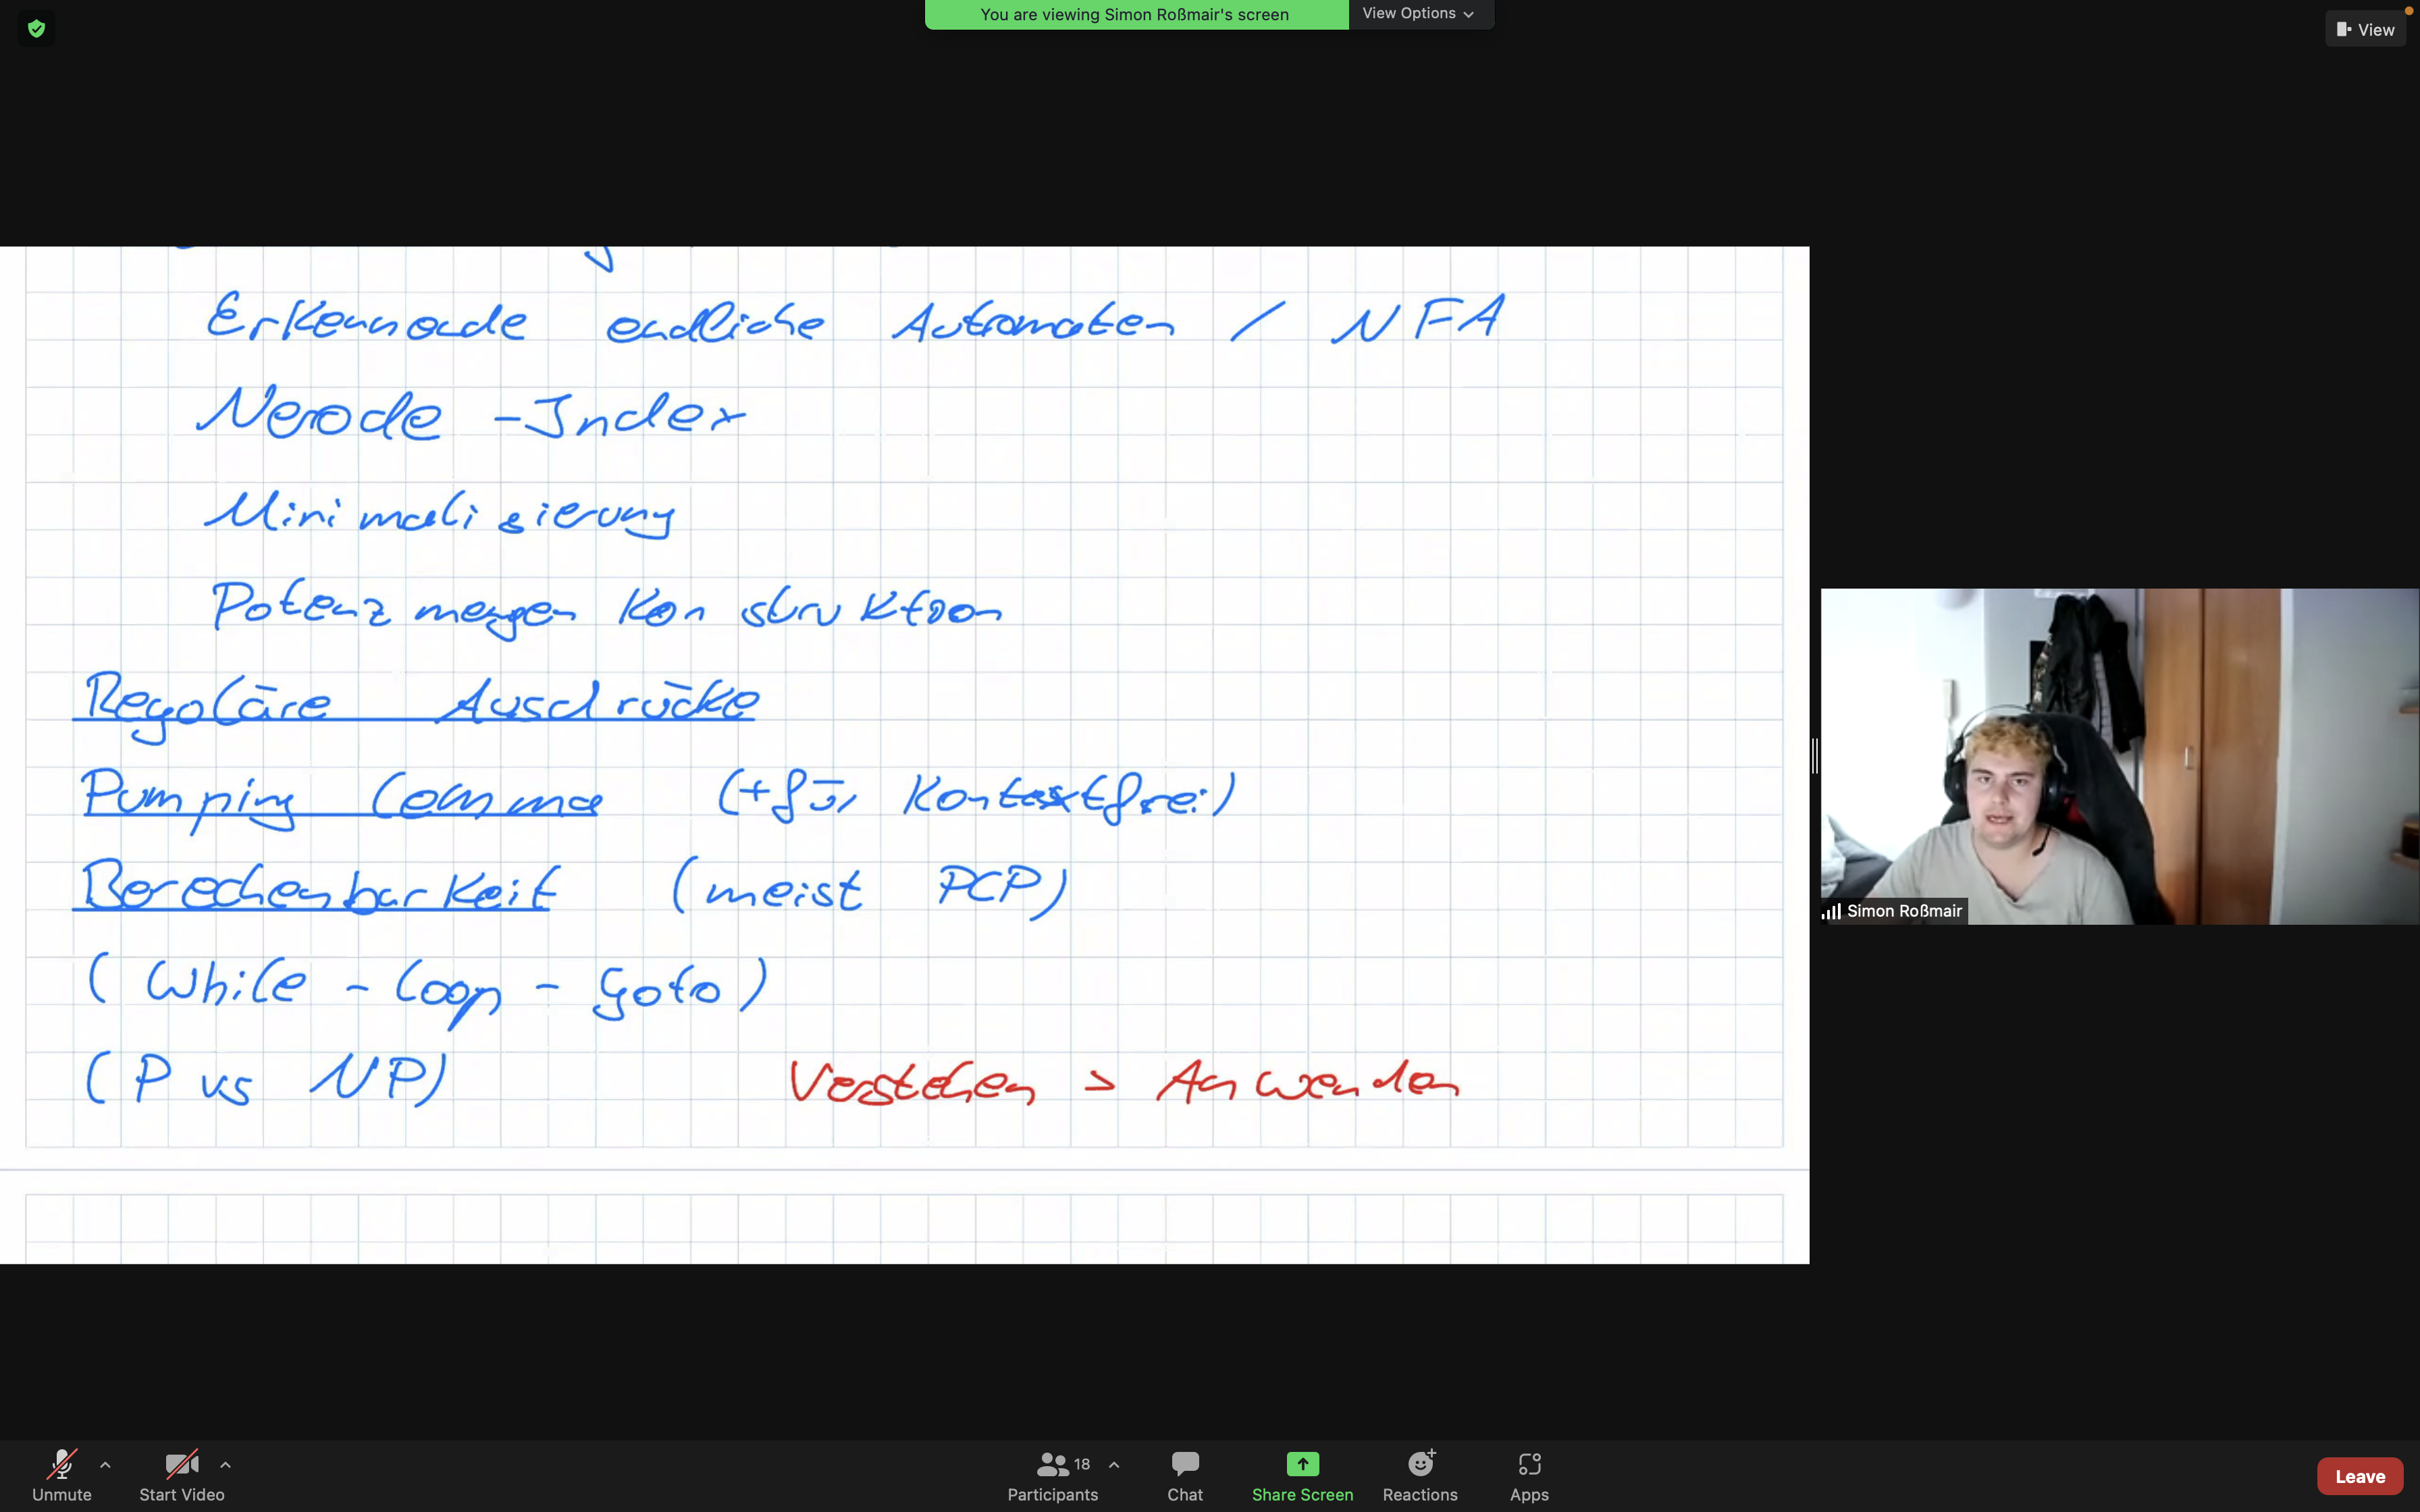 You are viewing Simon Roßmair's screen
View Options
View
Erkennende endliche Automaten / NFA
Nerode - Index
Minimalisierung
Potenzmengen Konstruktion
Reguläre Ausdrücke
Pumping Lemma (+ für Kontextfrei)
Berechenbarkeit (meist PCP)
(While - Loop - Goto)
(P vs NP) Verstehen > Anwenden
Simon Roßmair
Unmute
Start Video
18
Participants
Chat
Share Screen
Reactions
Apps
Leave